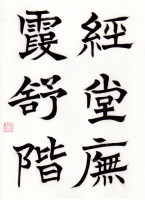 經堂廡
霞舒階